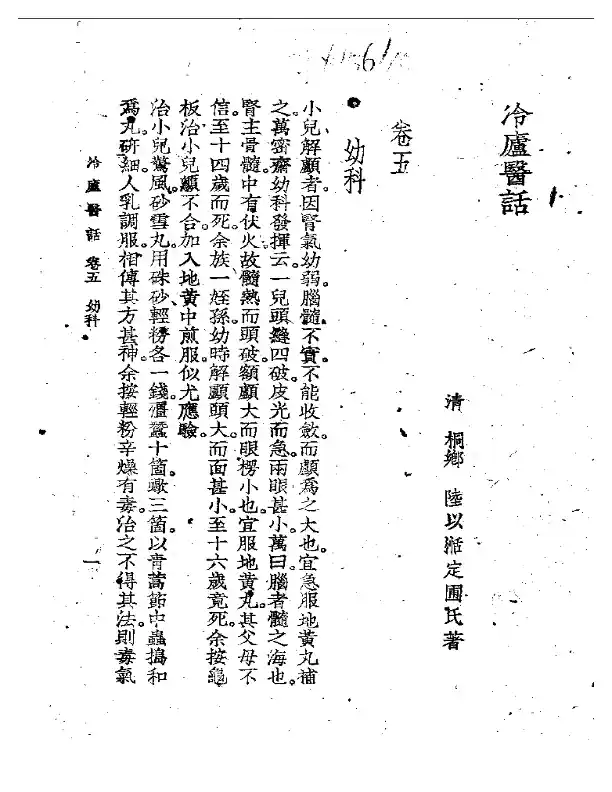 冷廬醫話
清 桐鄉 陸以湉定圃氏著
卷五
幼科
小兒解顱者。因腎氣幼弱。腦髓不實。不能收斂。而顱爲之大也。宜急服地黃丸補
之。萬密齋幼科發揮云。一兒頭縫四破。皮光而急。兩眼甚小。萬曰。腦者髓之海也。
腎主骨髓。中有伏火。故髓熱而頭破。額顱大而眼楞小也。宜服地黃丸。其父母不
信。至十四歲而死。余族一姪孫幼時解顱。頭大。而面甚小。至十六歲竟死。余按龜
板治小兒顱不合。加入地黃中煎服。似尤應驗。
治小兒驚風砂雪丸。用硃砂、輕粉各一錢。殭蠶十箇。蠍三箇。以青蒿節中蟲搗和
爲丸。研細。人乳調服。相傳其方甚神。余按輕粉辛燥有毒。冶之不得其法。則毒氣
冷廬醫話 卷五 幼科
一